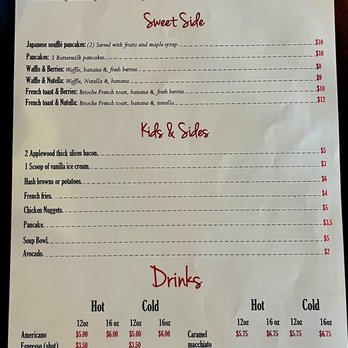 Sweet Side
Japanese soufflé pancakes: (2) Served with fruits and maple syrup. $10
Pancakes: 3 Buttermilk pancakes $10
Waffle & Berries: Waffle, banana & fresh berries $8
Waffle & Nutella: Waffle, Nutella & banana $9
French toast & Berries: Brioche French toast, banana & fresh berries $10
French toast & Nutella: Brioche French toast, banana & nutella $12
Kids & Sides
2 Applewood thick slices bacon. $5
1 Scoop of vanilla ice cream. $3
Hash browns or potatoes. $6
French fries. $4
Chicken Nuggets. $5
Pancake. $3.5
Soup Bowl. $5
Avocado. $2
Drinks
Hot Cold Hot Cold
12oz 16 oz 12oz 16oz 12oz 16 oz 12oz 16oz
Americano $5.00 $6.00 $5.00 $6.00 Caramel $5.75 $6.75 $5.75 $6.75
Espresso (shot) $3.50 $3.50 macchiato